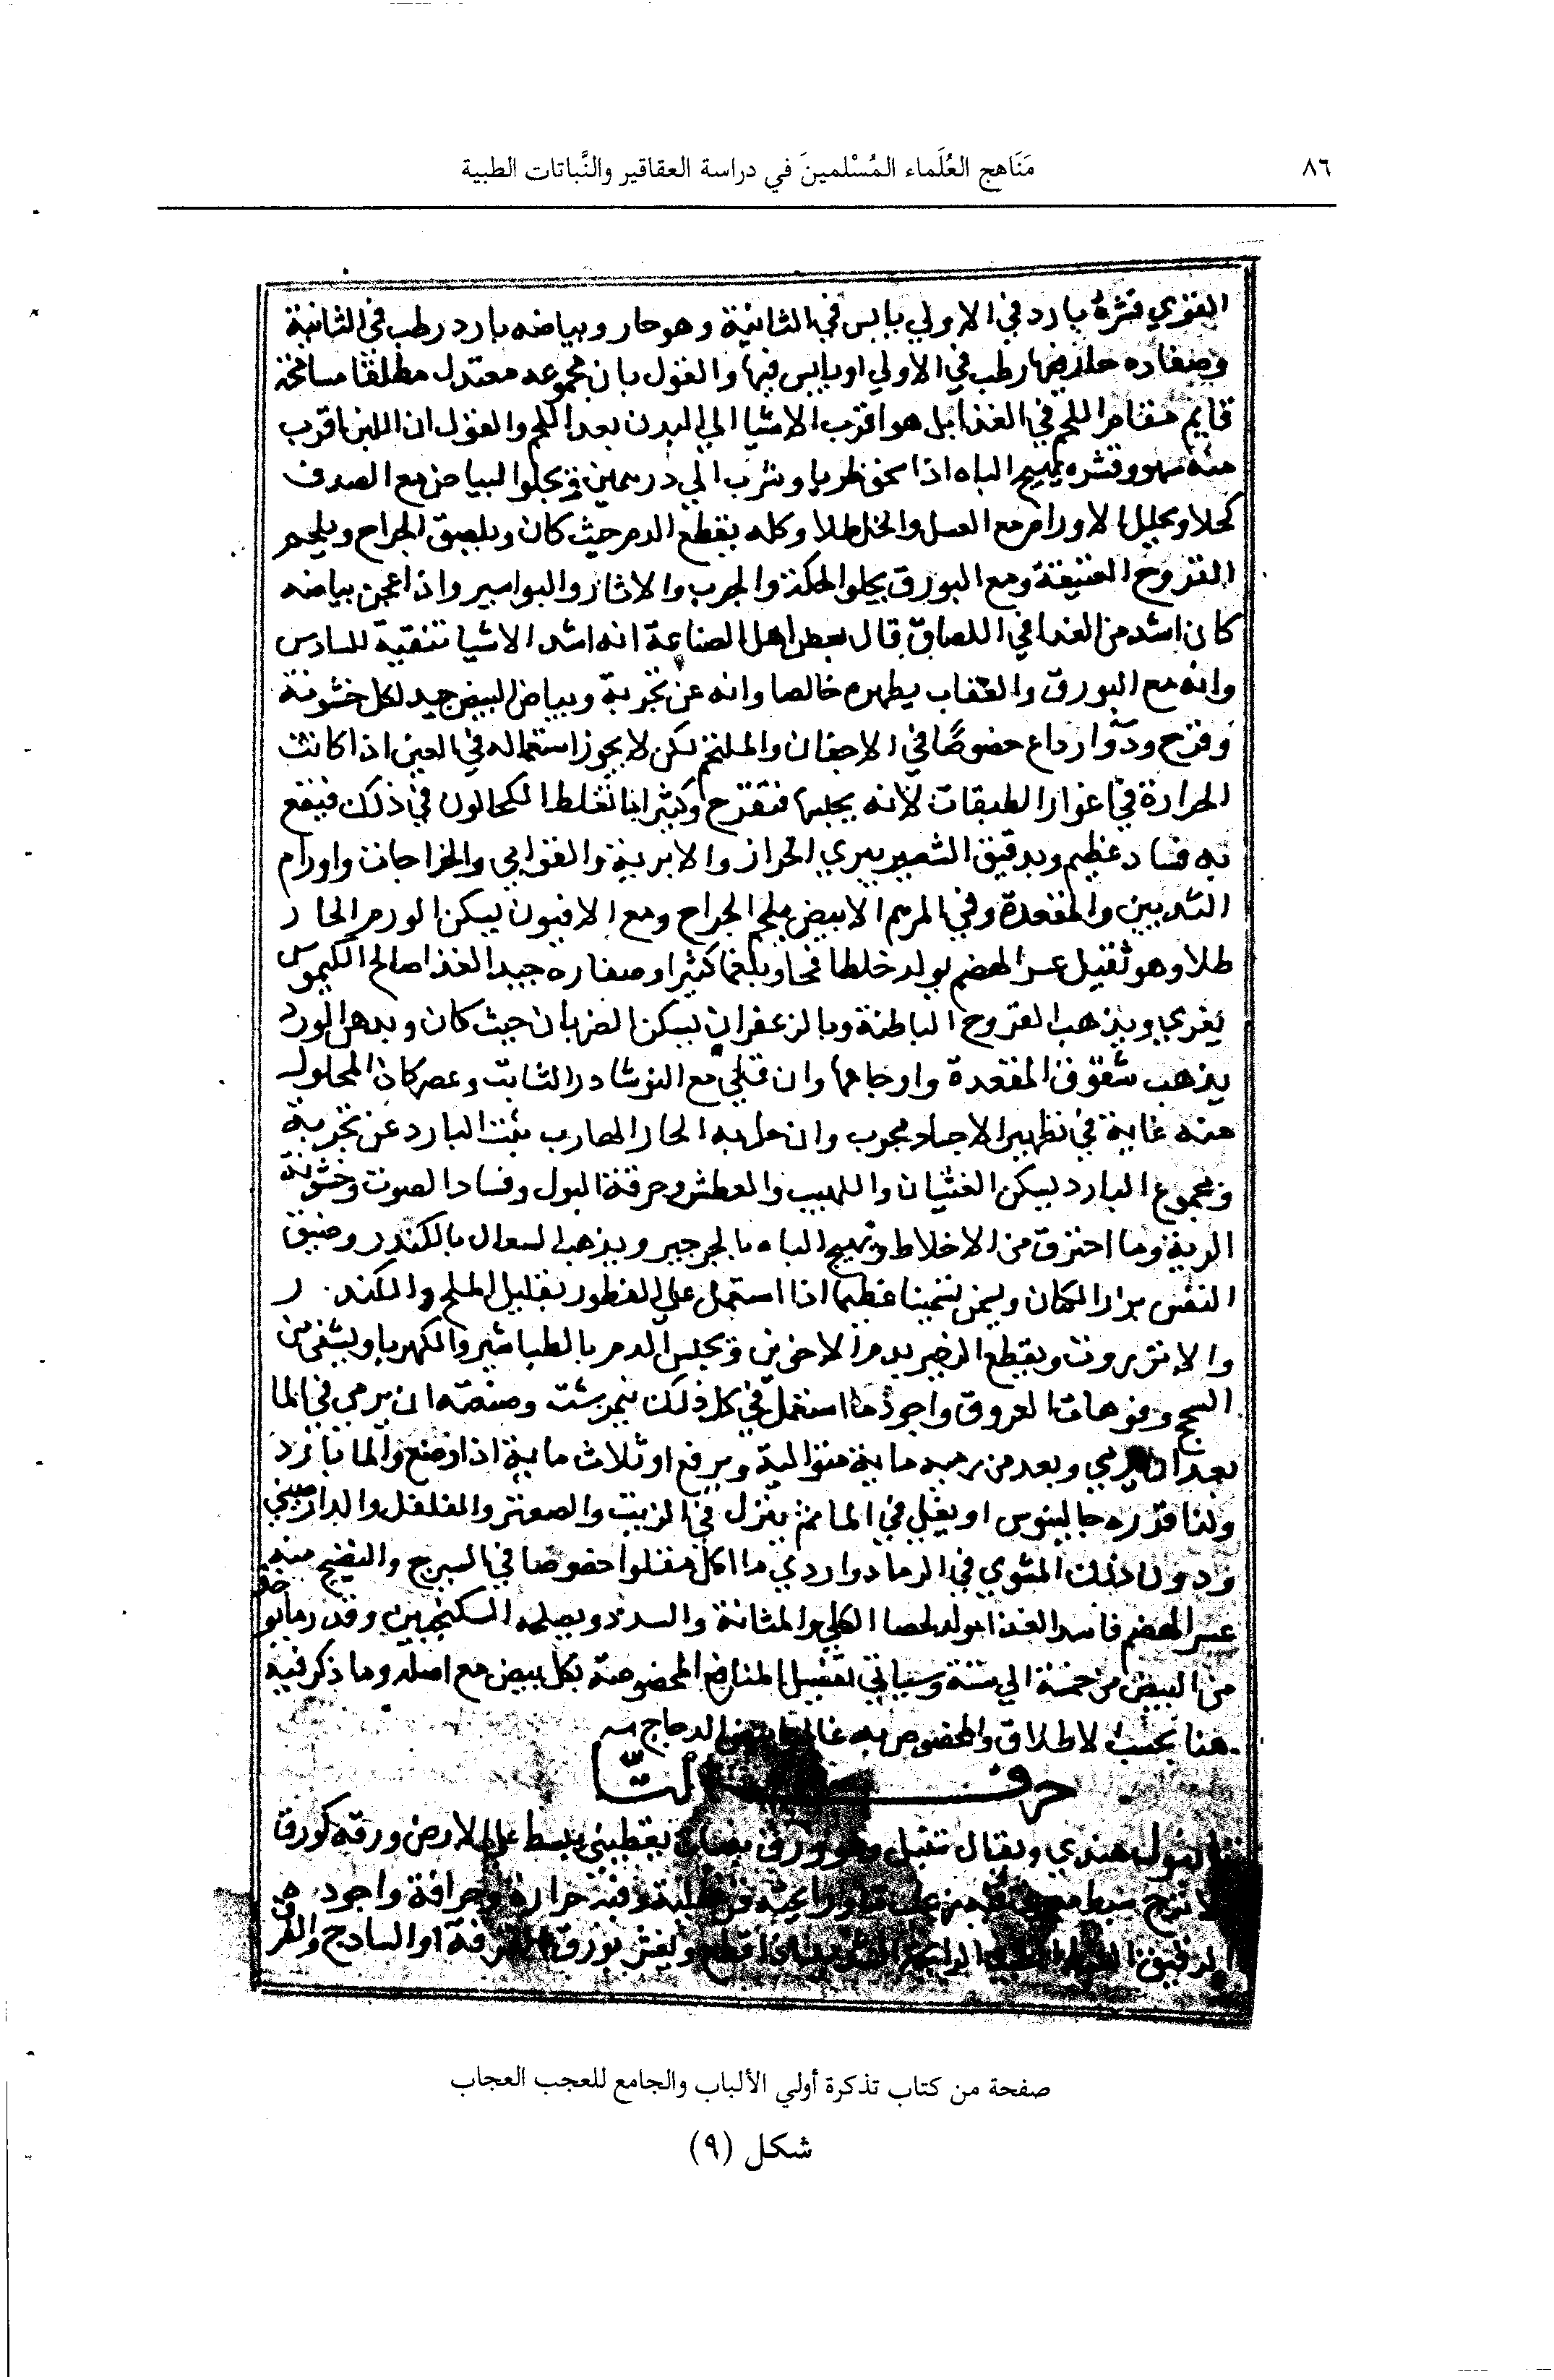 ٨٦
مَنَاهج العُلَماء المُسْلمينَ في دراسة العقاقير والنَّباتات الطبية
القوي قشره بارد في الاولي يابس في الثانية وهو حار وبياضه بارد رطب في الثانية
وصفاره حار فيها رطب في الاولي او يابس فيها والقول بان مجموعه معتدل مطلقا مسامحة
قايم مقام اللحم في الغذا بل هو اقرب الاشيا الي البدن بعد اللحم والقول ان اللبن اقرب
منه سهو وقشره يهيج الباه اذا سحق طريا وشرب الي درهمين ويجلو البياض مع الصدف
كحلا ويحلل الاورام مع العسل والخل طلا وكله يقطع الدم حيث كان ويلصق الجراح ويلحم
القروح العتيقة ومع البورق يجلو الحكة والجرب والاثار والبواسير واذا عجن بياضه
كان اشد من الغرا في اللصاق قال بعض اهل الصناعة انه اشد الاشيا تنقية للسادس
وانه مع البورق والعقاب يطهره خالصا وانه عن تجربة وبياض البيض جيد لكل خشونة
وقرح ودوا رداع خصوصًا في الاجفان والملتحم لكن لا يجوز استعماله في العين اذا كانت
الحرارة في اغوار الطبقات لانه يجلبها فتقرح وكثيرا ما تغلط الكحالون في ذلك فيقع
به فساد عظيم وبدقيق الشعير يبري الحزاز والابرية والقوابي والخراجات واورام
الثديين والمقعدة وفي المرهم الابيض يلحم الجراح ومع الافيون يسكن الورم الحار
طلا وهو ثقيل عسر الهضم يولد خلطا فجا وبلغما كثيرا وصفاره جيد الغذا صالح الكيموس
يغري ويذهب القروح الباطنة وبالزعفران يسكن الضربان حيث كان وبدهن الورد
يذهب شقوق المقعدة واوجاعها وان قلي مع النوشادر الثابت وعصر كان المحلول
منه غاية في تطهير الاجساد مجرب وان حل به الحار الهارب يثبت البارد عن تجربة
ومجموع البارد يسكن الغثيان واللهيب والعطش وحرقة البول وفساد الصوت وخشونة
الرية وما احترق من الاخلاط ويهيج الباه بالجرجير ويذهب السعال بالكندر وضيق
النفس ببزر الكتان ويسمن تسمينا عظيما اذا استعمل علي الفطور بقليل الملح والكندر
والانزروت ويقطع الزحير بدم الاخوين ويحبس الدم بالطباشير والكهربا ويشفي من
السحج وفوهات العروق واجود ما استعمل في كل ذلك نيمرشت وصنعته ان يرمي في الما
بعد ان يغلي ويعد من رميه ماية متوالية ويرفع او ثلاث ماية اذا وضع والما بارد
ولذا قدره جالينوس او يغلي في الما ثم ينزل في الزيت والصعتر والفلفل والدارصيني
ودون ذلك المشوي في الرماد واردي ما اكل مقلوا خصوصا في السيرج والنضيج منه
عسر الهضم فاسد الغذا مولد لحصا الكلي والمثانة والسدد ويصلحه السكنجبين وقدر ما يوخذ
من البيض من خمسة الي ستة وسياتي تفصيل المنافع المخصوصة بكل بيض مع اصله وما ذكر فيه
هنا بحسب الاطلاق والمخصوص به غالبا بيض الدجاج
حرف التا
تانبول هندي ويقال تنبل وهو ورق نبات يقطيني يبسط علي الارض ورقه كورق
الاترج وفيه حرارة وحرافة واجوده
الرقيق ويغش بورق القرفة او السادج والفرق
صفحة من كتاب تذكرة أولي الألباب والجامع للعجب العجاب
شكل (٩)